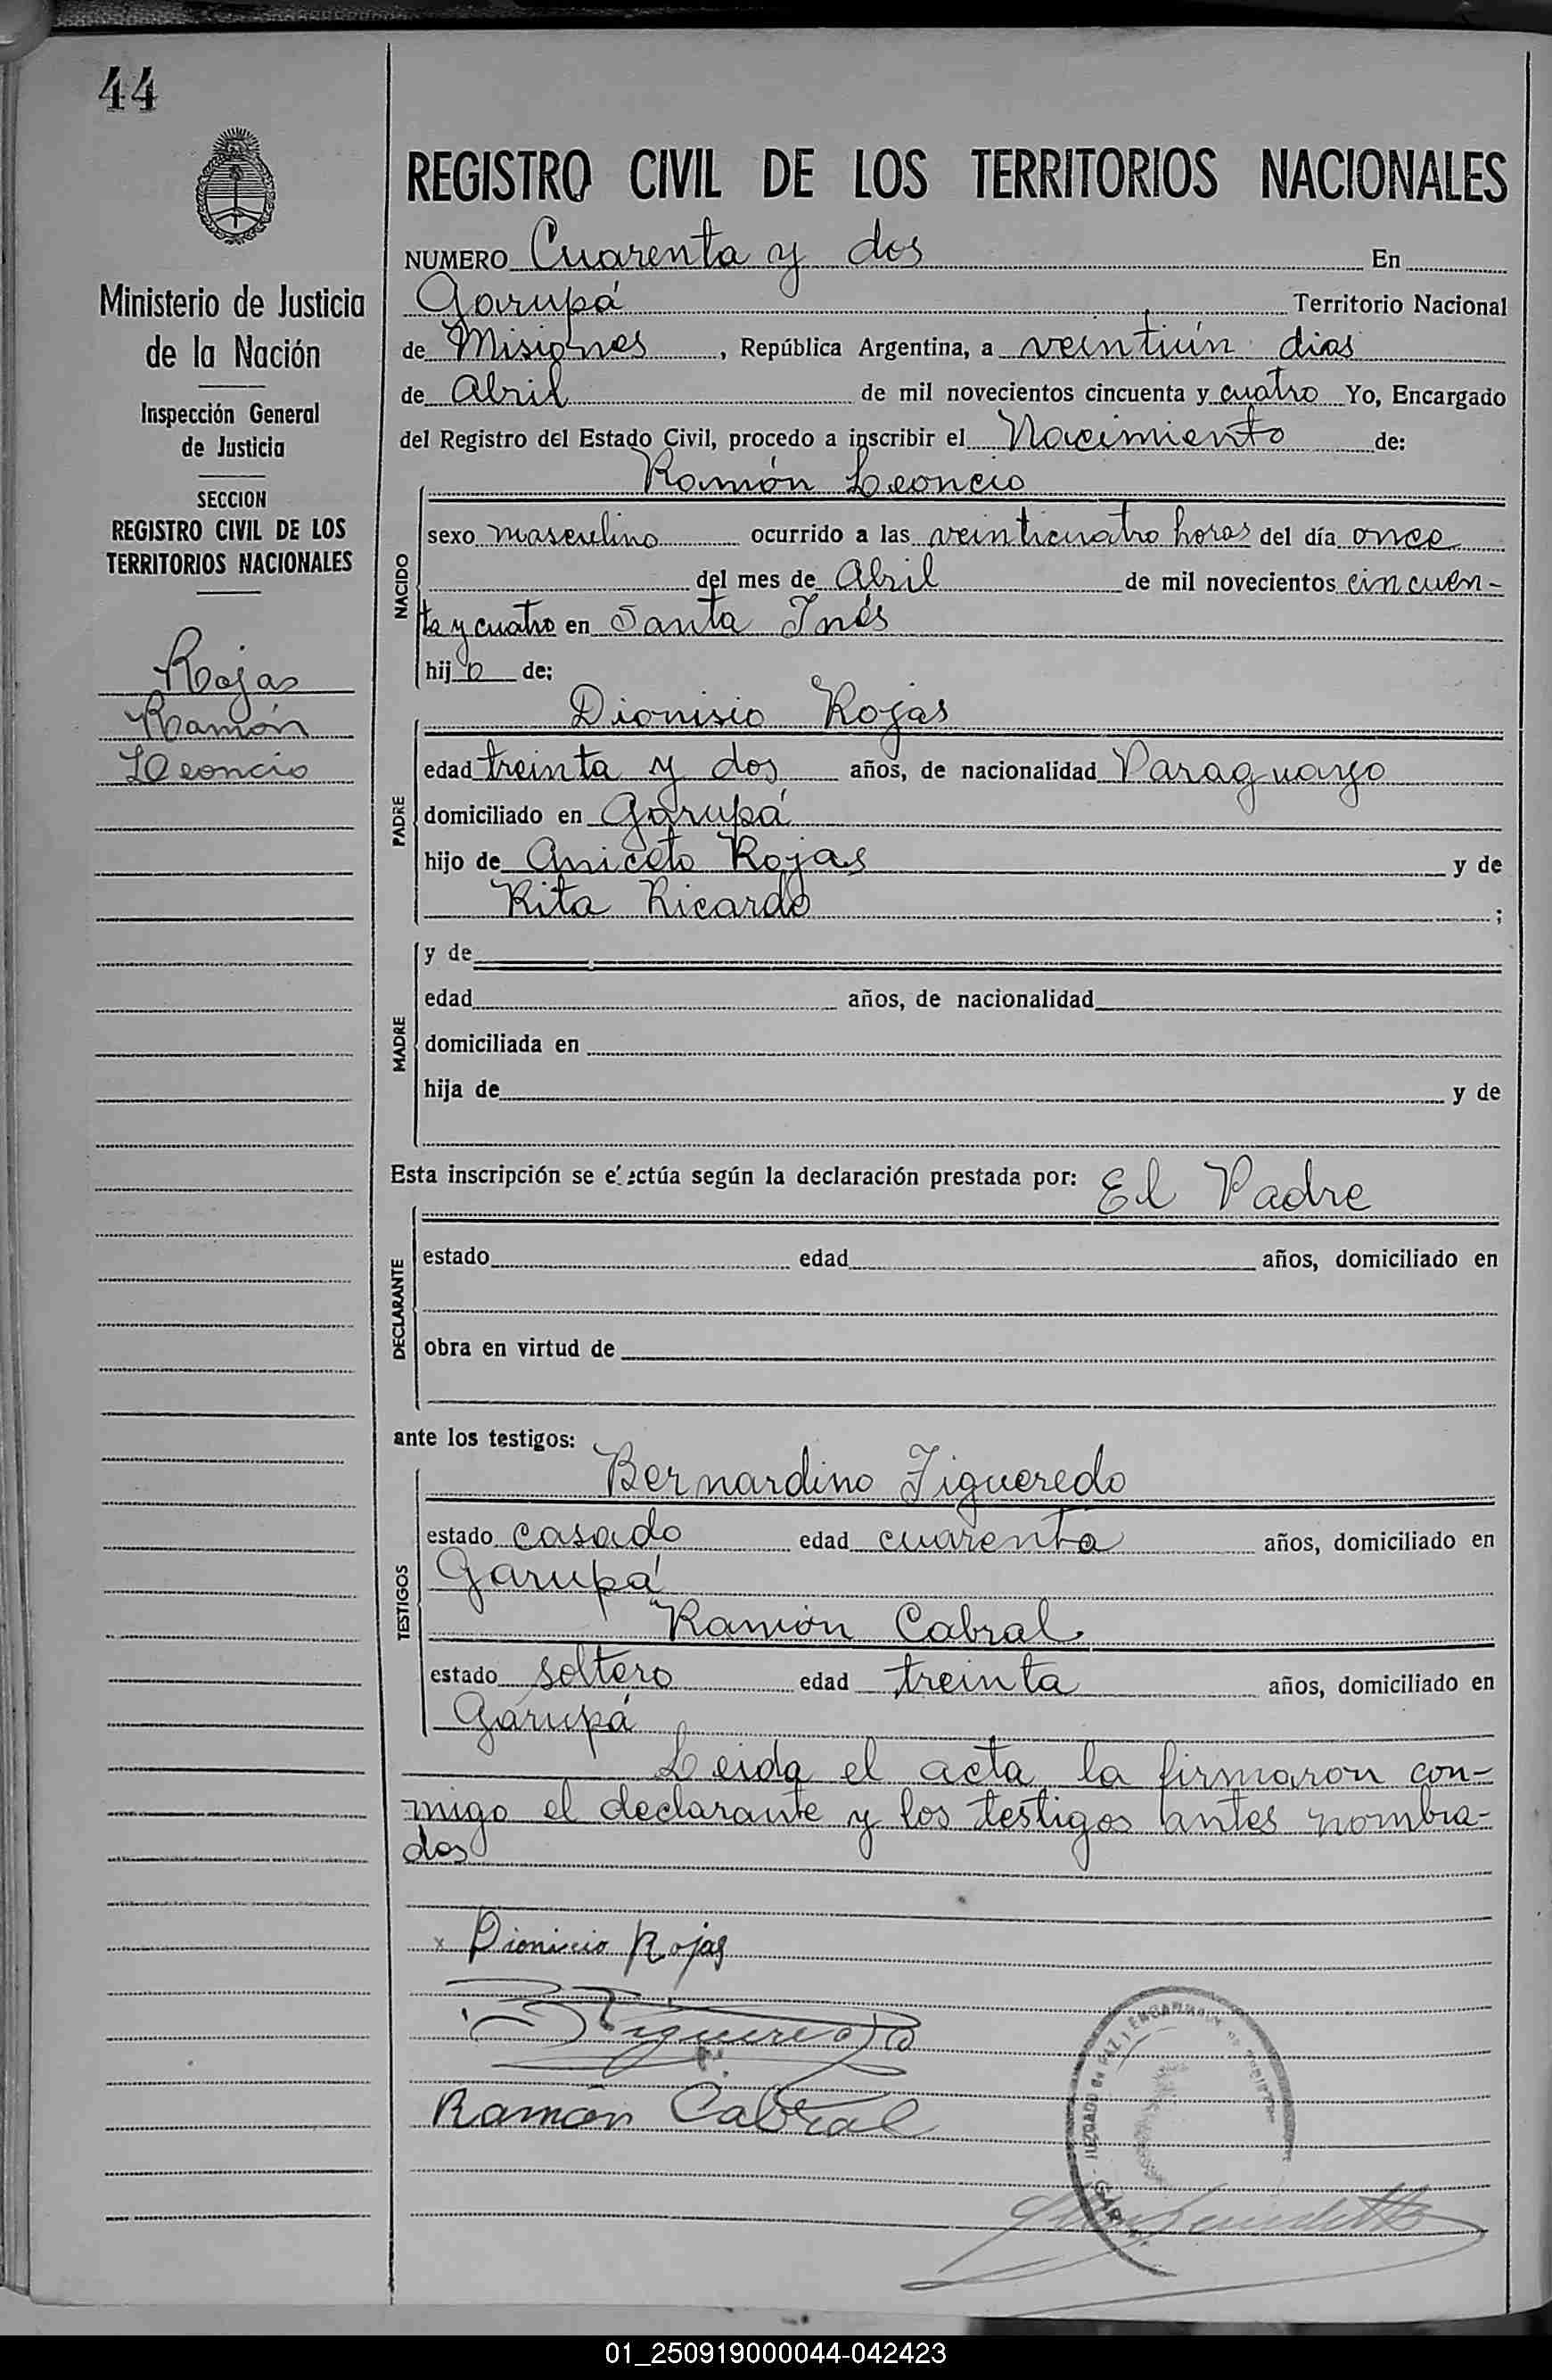 44
REGISTRO CIVIL DE LOS TERRITORIOS NACIONALES
Ministerio de Justicia
de la Nación
Inspección General
de Justicia
SECCION
REGISTRO CIVIL DE LOS
TERRITORIOS NACIONALES
Rojas
Ramón
Leoncio
NUMERO Cuarenta y dos En
Garupá Territorio Nacional
de Misiones, República Argentina, a veintiún dias
de Abril de mil novecientos cincuenta y cuatro Yo, Encargado
del Registro del Estado Civil, procedo a inscribir el Nacimiento de:
Ramón Leoncio
NACIDO
sexo masculino ocurrido a las veinticuatro horas del día once
del mes de Abril de mil novecientos cincuen-
ta y cuatro en Santa Inés
hijo de:
Dionisio Rojas
PADRE
edad treinta y dos años, de nacionalidad Paraguayo
domiciliado en Garupá
hijo de Aniceto Rojas y de
Rita Ricardo ;
MADRE
y de
edad años, de nacionalidad
domiciliada en
hija de y de
Esta inscripción se efectúa según la declaración prestada por: El Padre
DECLARANTE
estado edad años, domiciliado en
obra en virtud de
ante los testigos:
Bernardino Figueredo
TESTIGOS
estado casado edad cuarenta años, domiciliado en
Garupá
Ramón Cabral
estado soltero edad treinta años, domiciliado en
Garupá
Leida el acta la firmaron con-
migo el declarante y los testigos antes nombra-
dos
x Dionicio Rojas
B Figueredo
Ramón Cabral
JUZGADO de PAZ y
01_250919000044-042423